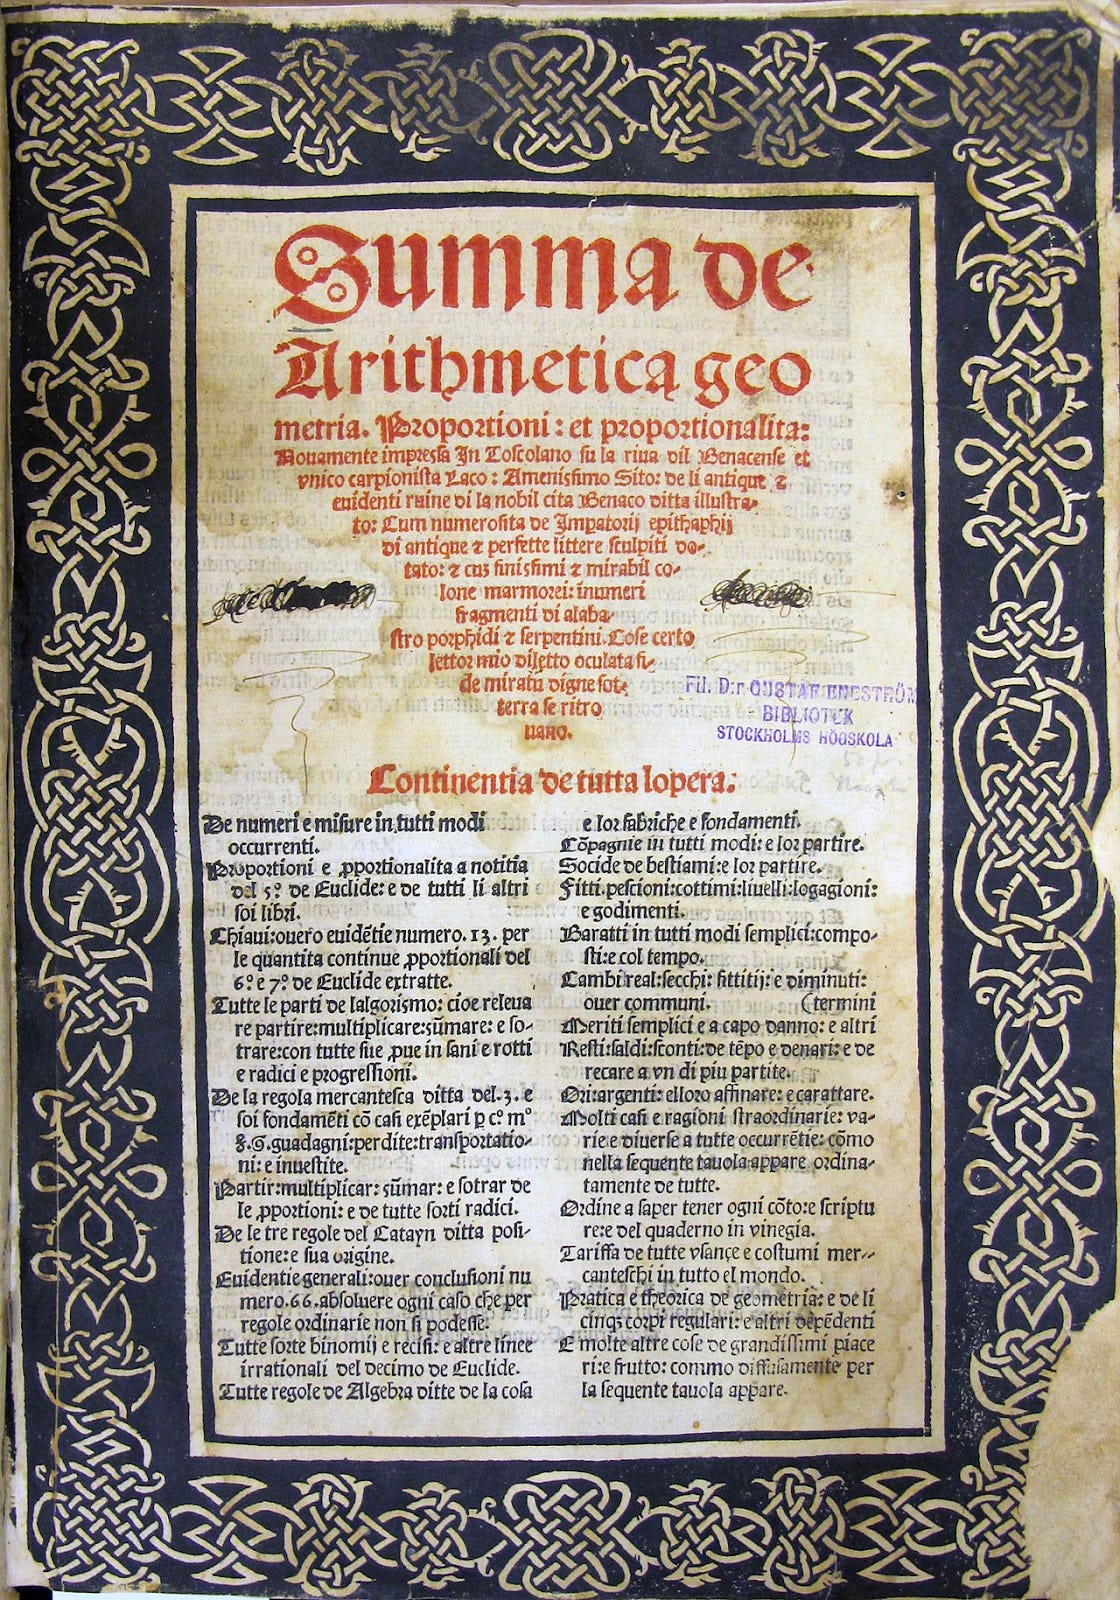 Summa de
Arithmetica geo
metria. Proportioni: et proportionalita:
Nouamente impressa In Toscolano su la riua dil Benacense et
vnico carpionista Laco: Amenissimo Sito: de li antique ⁊
euidenti ruine di la nobil cita Benaco ditta illustra-
to: Cum numerosita de Impatorij epithaphij
di antique ⁊ perfette littere sculpiti do-
tato: ⁊ cuz finissimi ⁊ mirabil co-
lone marmorei: inumeri
fragmenti di alaba-
stro porphidi ⁊ serpentini. Cose certo
lettor mio diletto oculata fi-
de miratu digne sot-
terra se ritro
uano.
Fil. D:r GUSTAF ENESTRÖM
BIBLIOTEK
STOCKHOLMS HÖGSKOLA
Continentia de tutta lopera:
De numeri e misure in tutti modi
occurrenti.
Proportioni e ꝓportionalita a notitia
del 5º. de Euclide: e de tutti li altri
soi libri.
Chiaui: ouero euidētie numero. 13. per
le quantita continue ꝓportionali del
6º. e 7º. de Euclide extratte.
Tutte le parti de lalgorismo: cioe releua
re partire: multiplicare: sūmare: e so-
trare: con tutte sue ꝓue in sani e rotti
e radici e progressioni.
De la regola mercantesca ditta del. 3. e
soi fondamēti cō casi exēplari ꝑ cº. mº
guadagni: perdite: transportatio-
ni: e inuestite.
Partir: multiplicar: sūmar: e sotrar de
le ꝓportioni: e de tutte sorti radici.
De le tre regole del Catayn ditta posi-
tione: e sua origine.
Euidentie generali: ouer conclusioni nu
mero. 66. absoluere ogni caso che per
regole ordinarie non si podesse.
Tutte sorte binomij e recisi: e altre linee
irrationali del decimo de Euclide.
Tutte regole de Algebra ditte de la cosa
e lor fabriche e fondamenti.
Cōpagnie in tutti modi: e lor partire.
Socide de bestiami: e lor partire.
Fitti: pescioni: cottimi: liuelli: logagioni:
e godimenti.
Baratti in tutti modi semplici: compo-
sti: e col tempo.
Cambi reali: secchi: fittitij: e diminuti:
ouer communi. (termini
Meriti semplici e a capo danno: e altri
Resti: saldi: sconti: de tēpo e denari: e de
recare a vn di piu partite.
Ori: argenti: e lloro affinare: e carattare.
Molti casi e ragioni straordinarie: va-
rie e diuerse a tutte occurrētie: cōmo
nella sequente tauola appare ordina-
tamente de tutte.
Ordine a saper tener ogni cōto: e scriptu
re: e del quaderno in vinegia.
Tariffa de tutte vsançe e costumi mer-
canteschi in tutto el mondo.
Pratica e theorica de geometria: e de li
cinqȝ corpi regulari: e altri dēpēdenti
E molte altre cose de grandissimi piace
ri: e frutto: commo diffusamente per
la sequente tauola appare.